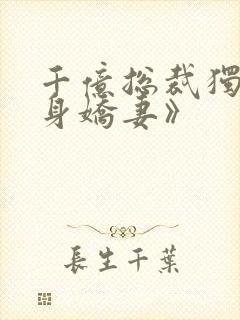 千億總裁獨
身嬌妻》
長生千葉